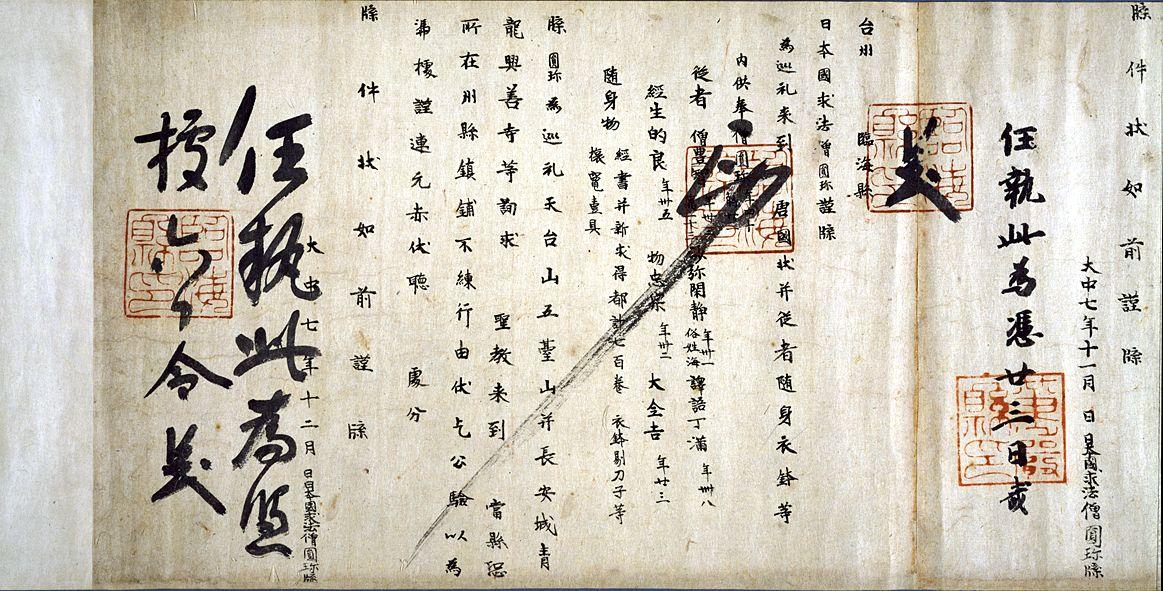 牒件状如前謹牒
大中七年十一月 日日本國求法僧圓珎牒
任執此為憑廿三日
台州 臨海縣
日本國求法僧圓珎謹牒
為巡礼来到唐國状并従者随身衣鉢等
内供奉僧圓珎
従者 僧豊 沙弥閑静 年卅一 俗姓海 譯語丁滿 年卌八
經生的良 年卅五 物忠宗 年卅二 大全吉 年廿三
随身物 經書并新求得都計七百卷 衣鉢剔刀子等
壹具
牒圓珎為巡礼天台山五臺山并長安城青
龍興善寺等詢求 聖教来到 當縣恐
所在州縣鎮鋪不練行由伏乞公驗以為
憑據謹連元赤伏聴 處分
牒件状如前謹牒
大中七年十二月 日日本國求法僧圓珎牒
任執此為憑